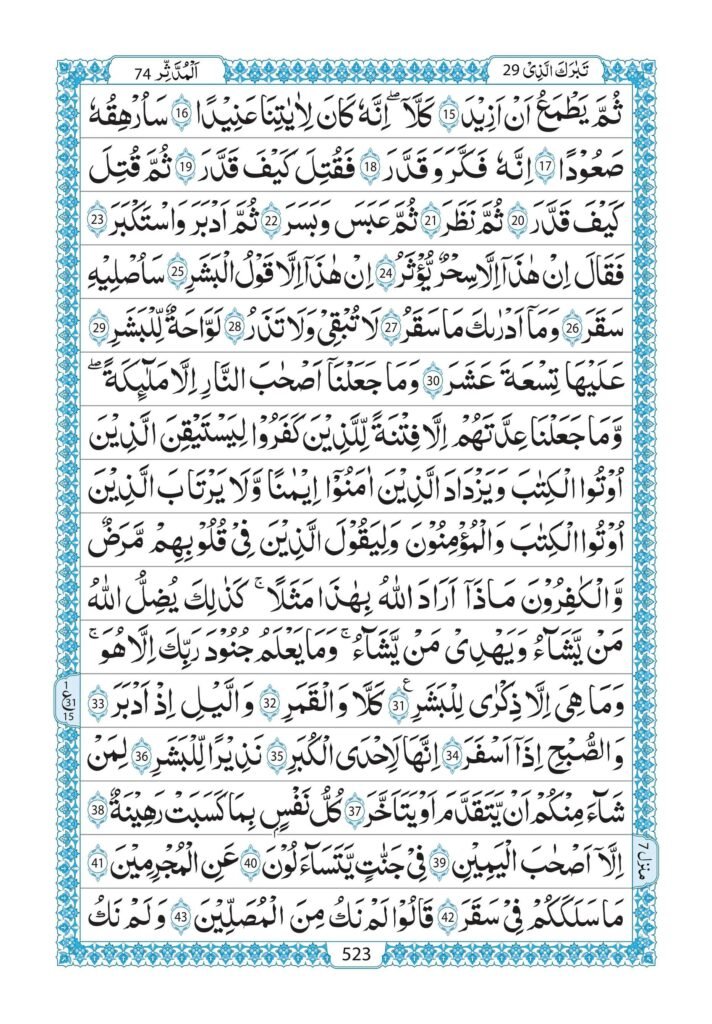 تَبٰرَكَ الَّذِیْ 29
اَلْمُدَّثِّر 74
ثُمَّ یَطْمَعُ اَنْ اَزِیْدَ 15 كَلَّا ؕ اِنَّهٗ كَانَ لِاٰیٰتِنَا عَنِیْدًا 16 سَاُرْهِقُهٗ
صَعُوْدًا 17 اِنَّهٗ فَكَّرَ وَ قَدَّرَ 18 فَقُتِلَ كَیْفَ قَدَّرَ 19 ثُمَّ قُتِلَ
كَیْفَ قَدَّرَ 20 ثُمَّ نَظَرَ 21 ثُمَّ عَبَسَ وَبَسَرَ 22 ثُمَّ اَدْبَرَ وَاسْتَكْبَرَ 23
فَقَالَ اِنْ هٰذَاۤ اِلَّا سِحْرٌ یُّؤْثَرُ 24 اِنْ هٰذَاۤ اِلَّا قَوْلُ الْبَشَرِ 25 سَاُصْلِیْهِ
سَقَرَ 26 وَمَاۤ اَدْرٰىكَ مَا سَقَرُ 27 لَا تُبْقِیْ وَلَا تَذَرُ 28 لَوَّاحَةٌ لِّلْبَشَرِ 29
عَلَیْهَا تِسْعَةَ عَشَرَ 30 وَمَا جَعَلْنَاۤ اَصْحٰبَ النَّارِ اِلَّا مَلٰٓىِٕكَةً ۪
وَّمَا جَعَلْنَا عِدَّتَهُمْ اِلَّا فِتْنَةً لِّلَّذِیْنَ كَفَرُوْا لِیَسْتَیْقِنَ الَّذِیْنَ
اُوْتُوا الْكِتٰبَ وَیَزْدَادَ الَّذِیْنَ اٰمَنُوْۤا اِیْمٰنًا وَّلَا یَرْتَابَ الَّذِیْنَ
اُوْتُوا الْكِتٰبَ وَالْمُؤْمِنُوْنَ وَلِیَقُوْلَ الَّذِیْنَ فِیْ قُلُوْبِهِمْ مَّرَضٌ
وَّالْكٰفِرُوْنَ مَاذَاۤ اَرَادَ اللّٰهُ بِهٰذَا مَثَلًا ؕ كَذٰلِكَ یُضِلُّ اللّٰهُ
مَنْ یَّشَآءُ وَیَهْدِیْ مَنْ یَّشَآءُ ؕ وَمَا یَعْلَمُ جُنُوْدَ رَبِّكَ اِلَّا هُوَ ؕ
وَمَا هِیَ اِلَّا ذِكْرٰی لِلْبَشَرِ 31 كَلَّا وَالْقَمَرِ 32 وَالَّیْلِ اِذْ اَدْبَرَ 33
1
ع
31
15
وَالصُّبْحِ اِذَاۤ اَسْفَرَ 34 اِنَّهَا لَاِحْدَی الْكُبَرِ 35 نَذِیْرًا لِّلْبَشَرِ 36 لِمَنْ
شَآءَ مِنْكُمْ اَنْ یَّتَقَدَّمَ اَوْ یَتَاَخَّرَ 37 كُلُّ نَفْسٍۭ بِمَا كَسَبَتْ رَهِیْنَةٌ 38
اِلَّاۤ اَصْحٰبَ الْیَمِیْنِ 39 فِیْ جَنّٰتٍ یَتَسَآءَلُوْنَ 40 عَنِ الْمُجْرِمِیْنَ 41
منزل 7
مَا سَلَكَكُمْ فِیْ سَقَرَ 42 قَالُوْا لَمْ نَكُ مِنَ الْمُصَلِّیْنَ 43 وَلَمْ نَكُ
523